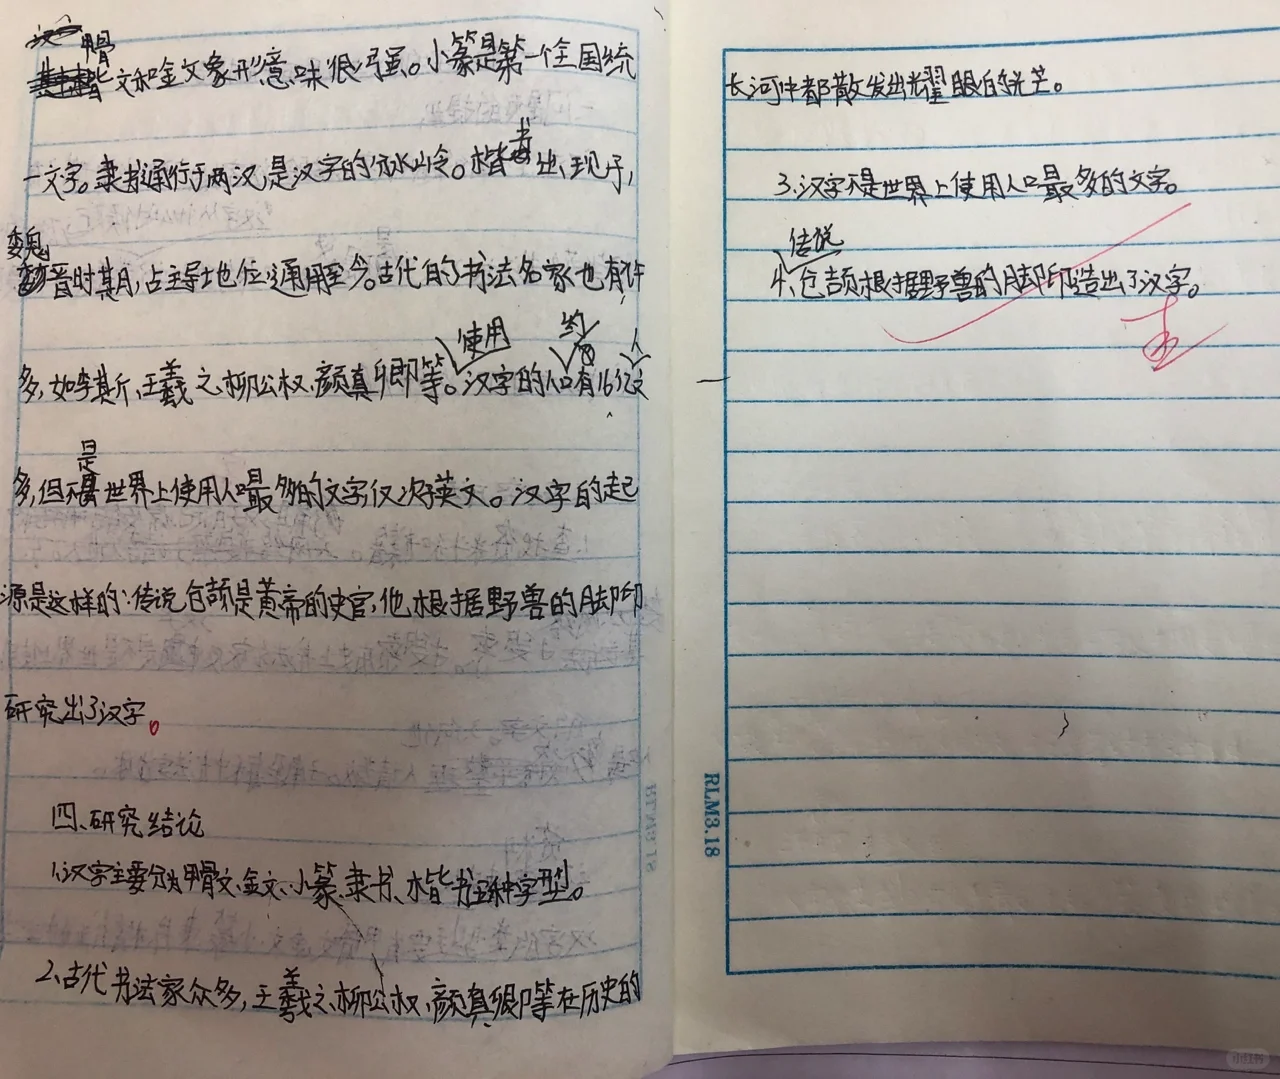 甲骨文和金文象形意味很强。小篆是第一个全国统
一文字。隶书通行于两汉,是汉字的分水岭。楷书出现于,
魏晋时期,占主导地位,通用至今。古代的书法名家也有许
多,如李斯、王羲之、柳公权、颜真卿等。使用汉字的人口约有16亿人
多,但不是世界上使用人口最多的文字仅次于英文。汉字的起
源是这样的:传说仓颉是黄帝的史官,他根据野兽的脚印
研究出了汉字。
四、研究结论
1.汉字主要分为甲骨文、金文、小篆、隶书、楷书五种字型。
2.古代书法家众多,王羲之、柳公权、颜真卿等在历史的
长河中都散发出光耀眼的光芒。
3.汉字不是世界上使用人口最多的文字。
4.传说仓颉根据野兽的脚印造出了汉字。
RLM3.18
RLM3.18
小红书